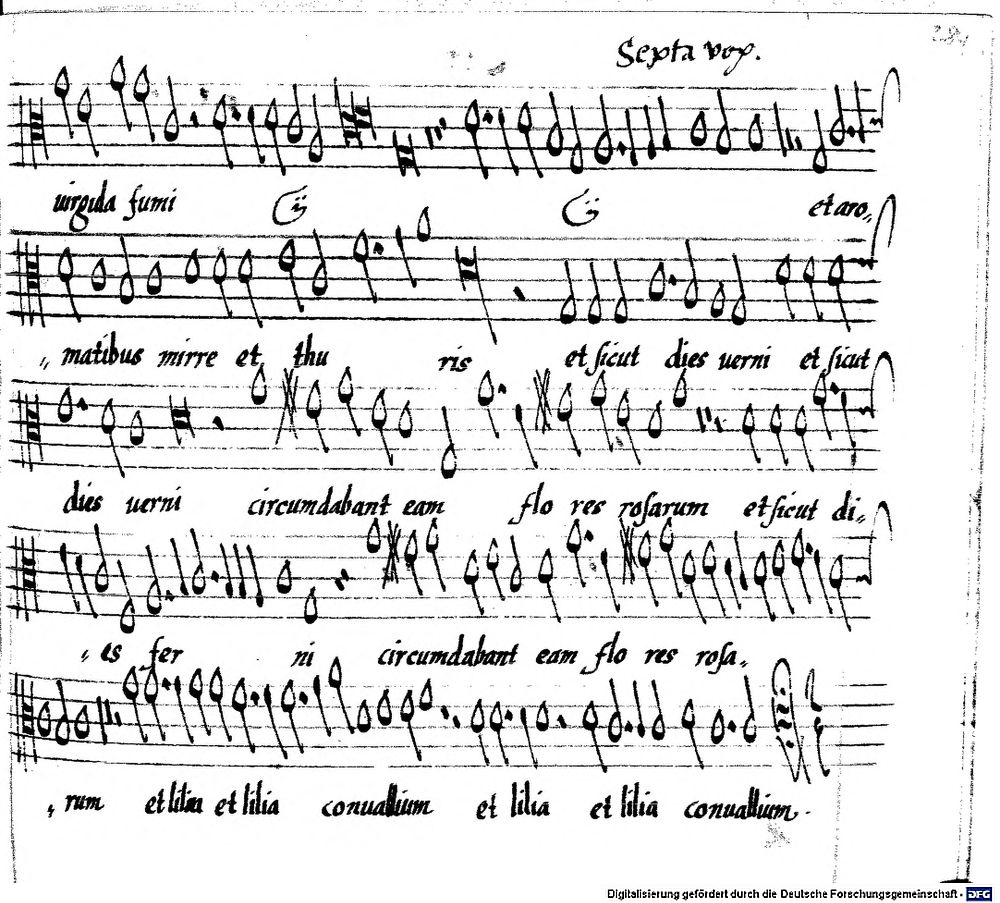 284
Septa vox.
uirgula fumi et aro„
„ matibus mirre et thu ris et sicut dies uerni et sicut
dies uerni circumdabant eam flo res rosarum et sicut di„
„ es fer ni circumdabant eam flo res rosa„
„ rum et lilia et lilia conuallium et lilia et lilia conuallium.
Digitalisierung gefördert durch die Deutsche Forschungsgemeinschaft - DFG